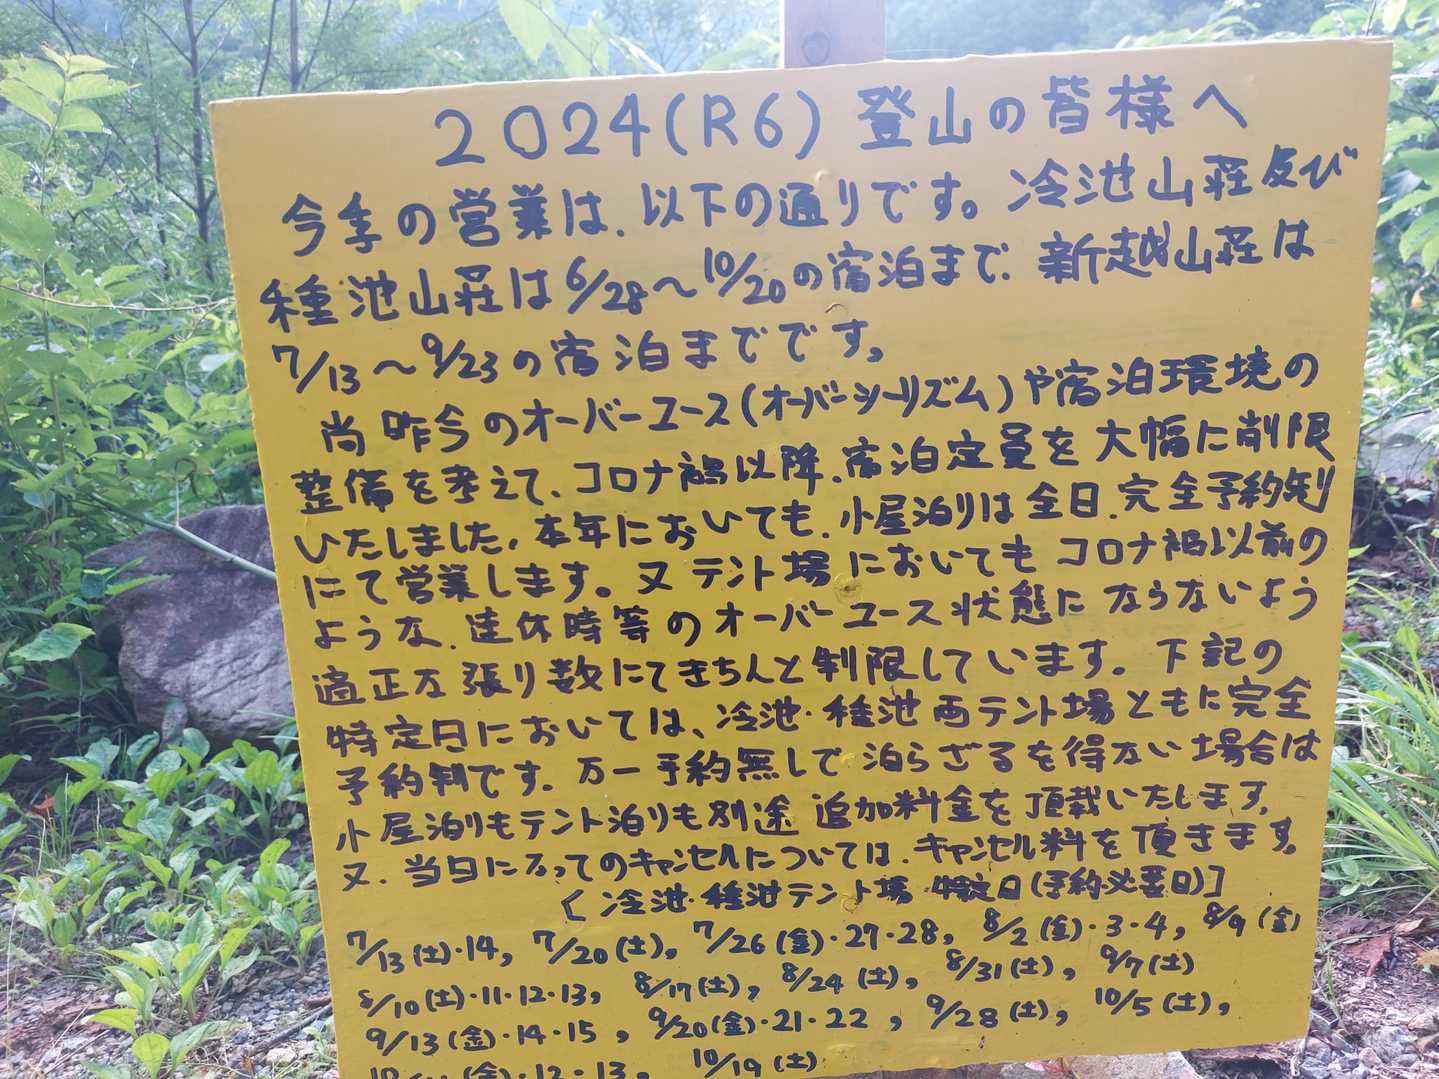 2024(R6) 登山の皆様へ
今季の営業は、以下の通りです。冷池山荘及び
種池山荘は6/28～10/20の宿泊まで、新越山荘は
7/13～9/23の宿泊までです。
尚昨今のオーバーユース(オーバーツーリズム)や宿泊環境の
整備を考えて、コロナ禍以降、宿泊定員を大幅に削限
いたしました。本年においても、小屋泊りは全日、完全予約制
にて営業します。又テント場においてもコロナ禍以前の
ような、連休時等のオーバーユース状態にならないよう
適正な張り数にてきちんと制限しています。下記の
特定日においては、冷池・種池両テント場ともに完全
予約制です。万一予約無しで泊らざるを得ない場合は
小屋泊りもテント泊りも別途追加料金を頂載いたします。
又、当日になってのキャンセルについては、キャンセル料を頂きます。
[冷池・種池テント場 特定日(予約必要日)]
7/13(土)・14, 7/20(土), 7/26(金)・27・28, 8/2(金)・3・4, 8/9(金)
8/10(土)・11・12・13, 8/17(土), 8/24(土), 8/31(土), 9/7(土)
9/13(金)・14・15, 9/20(金)・21・22, 9/28(土), 10/5(土),
(金)・12・13, 10/19(土)